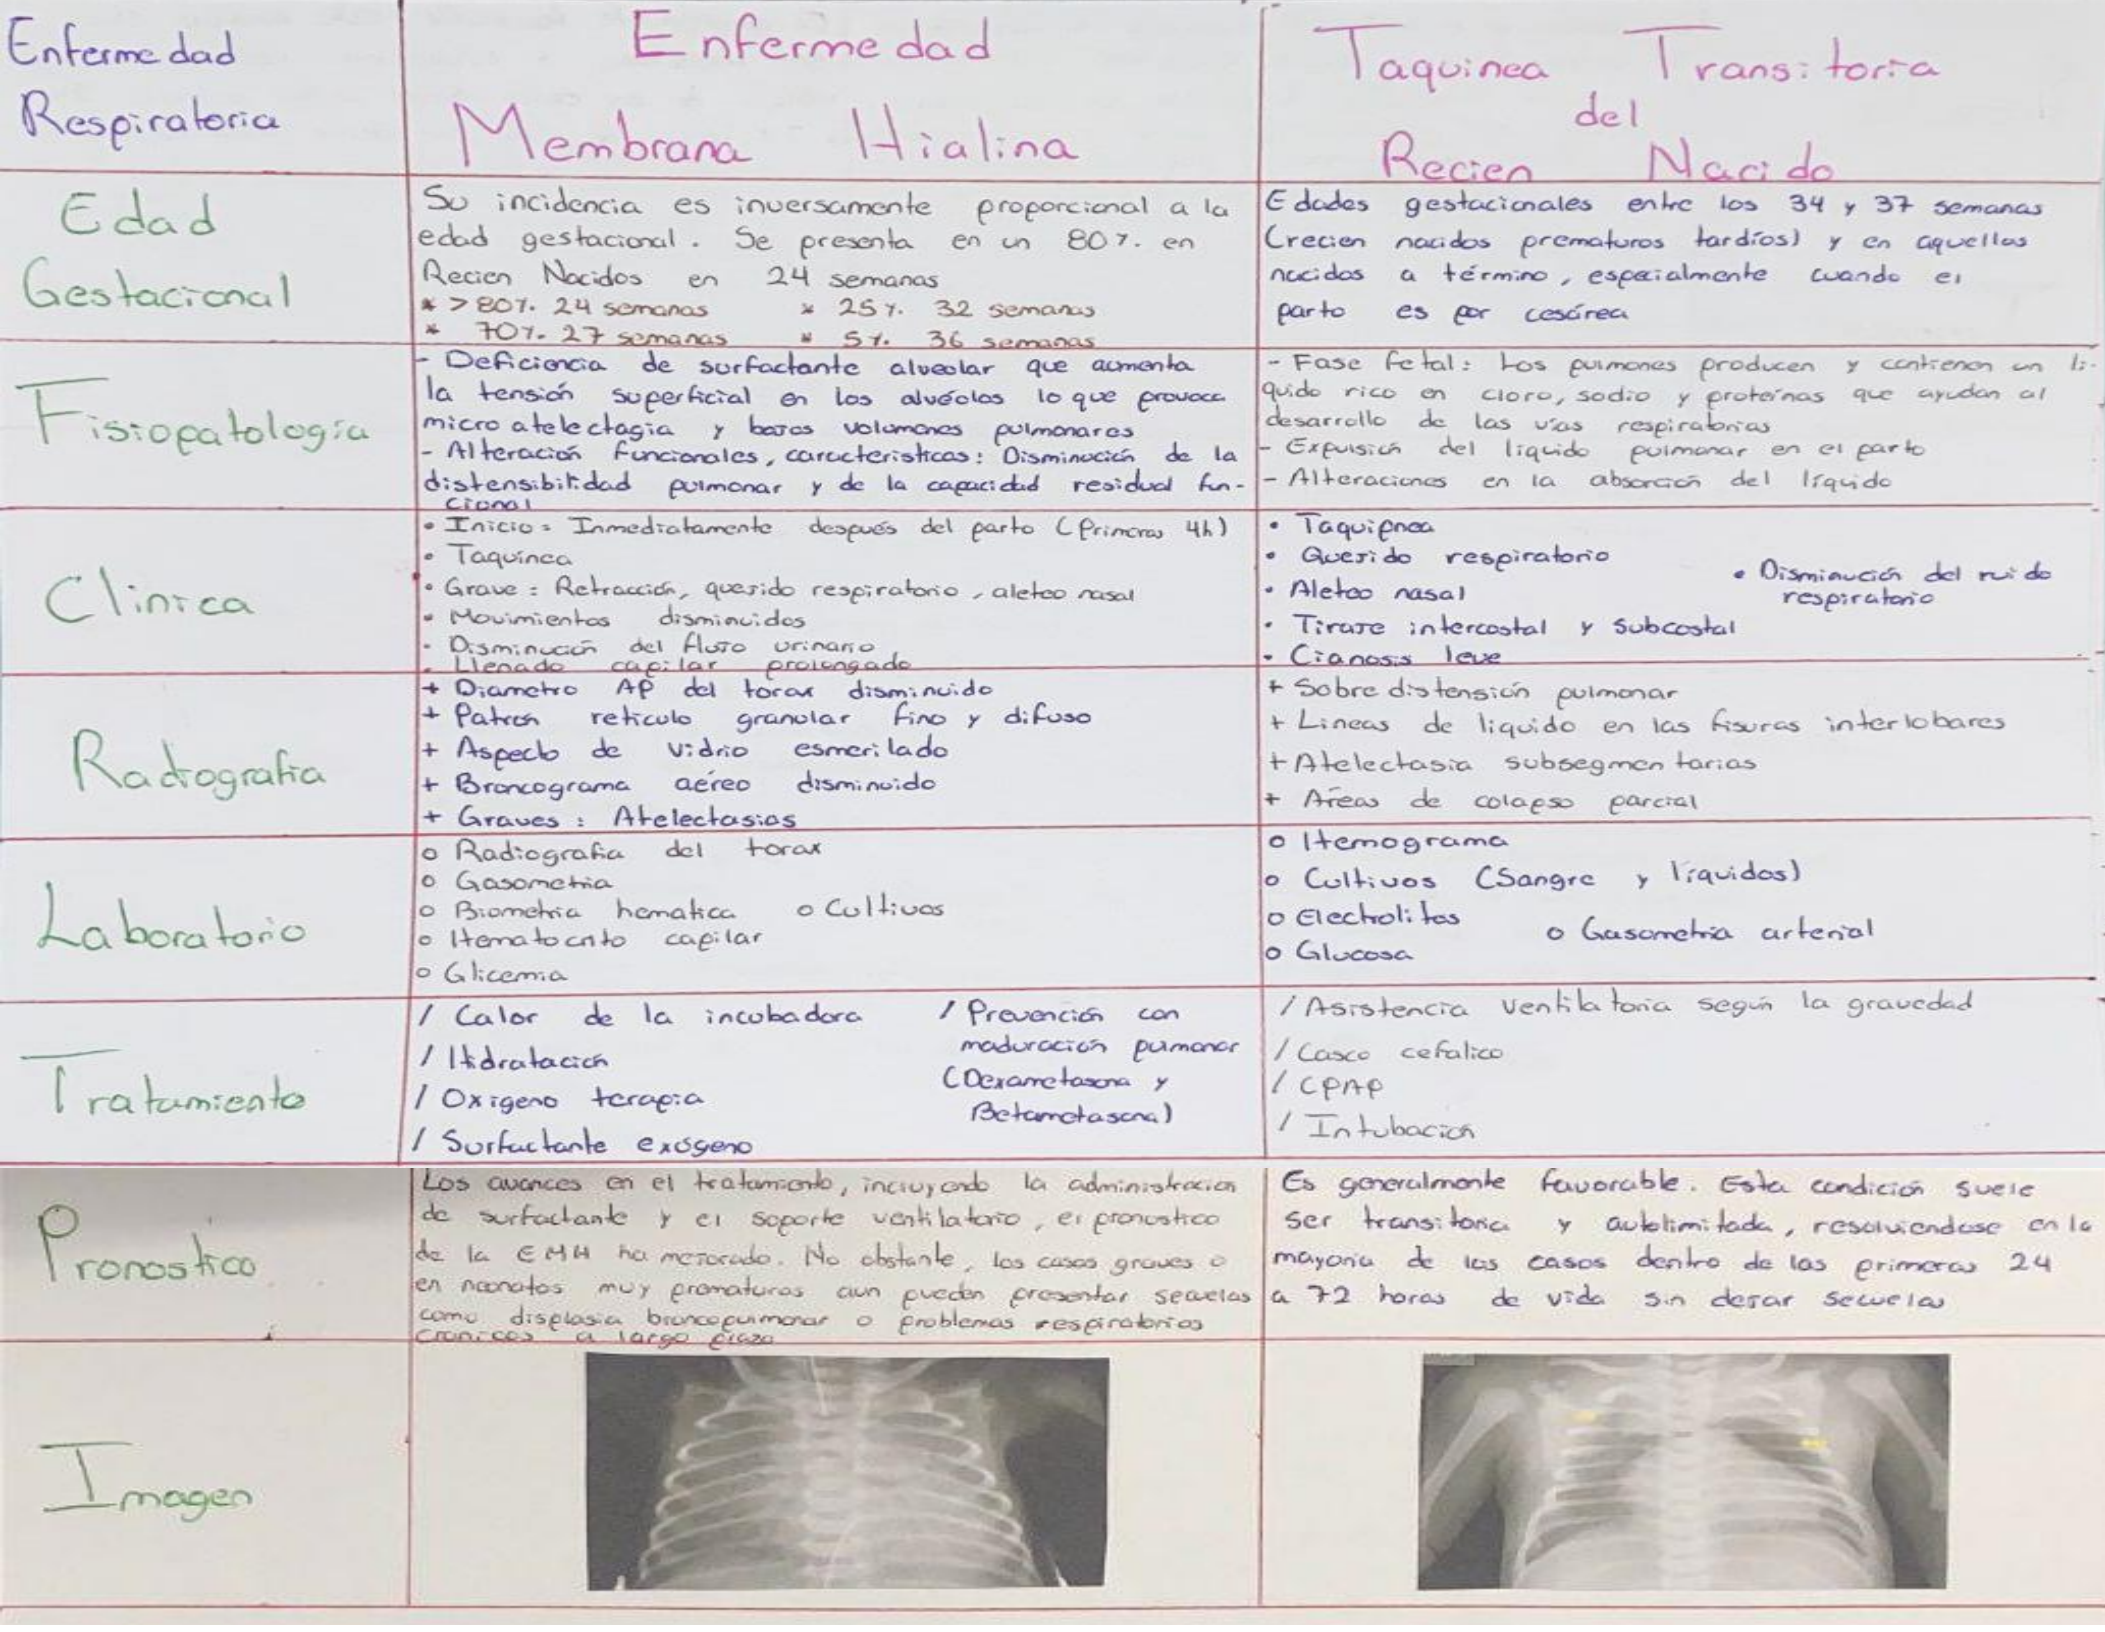 Enfermedad
Respiratoria
Enfermedad
Membrana Hialina
Taquinea Transitoria
del
Recien Nacido
Edad
Gestacional
Su incidencia es inversamente proporcional a la
edad gestacional. Se presenta en un 80%. en
Recien Nacidos en 24 semanas
* >80%. 24 semanas * 25%. 32 semanas
* 70%. 27 semanas * 5%. 36 semanas
Edades gestacionales entre los 34 y 37 semanas
(recien nacidos prematuros tardíos) y en aquellos
nacidos a término, especialmente cuando el
parto es por cesárea
Fisiopatología
- Deficiencia de surfactante alveolar que aumenta
la tensión superficial en los alvéolos lo que provoca
micro atelectagia y bajos volumenes pulmonares
- Alteración funcionales, caracteristicas: Disminución de la
distensibilidad pulmonar y de la capacidad residual fun-
cional
- Fase fetal: Los pulmones producen y contienen un lí-
quido rico en cloro, sodio y proteínas que ayudan al
desarrollo de las vías respiratorias
- Expulsión del líquido pulmonar en el parto
- Alteraciones en la absorción del líquido
Clinica
• Inicio: Inmediatamente después del parto (Primeras 4h)
• Taquinea
• Grave: Retracción, quejido respiratorio, aleteo nasal
• Movimientos disminuidos
• Disminución del flujo urinario
• Llenado capilar prolongado
• Taquipnea
• Quejido respiratorio
• Aleteo nasal
• Tiraje intercostal y subcostal
• Cianosis leve
• Disminución del ruido
respiratorio
Radiografia
+ Diametro AP del torax disminuido
+ Patron reticulo granular fino y difuso
+ Aspecto de vidrio esmerilado
+ Broncograma aéreo disminuido
+ Graves: Atelectasias
+ Sobre distensión pulmonar
+ Lineas de liquido en las fisuras interlobares
+ Atelectasia subsegmentarias
+ Áreas de colapso parcial
Laboratorio
o Radiografia del torax
o Gasometria
o Biometria hematica o Cultivos
o Hematocrito capilar
o Glicemia
o Hemograma
o Cultivos (Sangre y líquidos)
o Electrolitos
o Gasometria arterial
o Glucosa
Tratamiento
/ Calor de la incubadora
/ Hidratación
/ Oxigeno terapia
/ Surfactante exógeno
/ Prevención con
maduración pumonar
(Dexametasona y
Betametasona)
/ Asistencia ventilatoria según la gravedad
/ Casco cefalico
/ CPAP
/ Intubación
Pronostico
Los avances en el tratamiento, incluyendo la administracion
de surfactante y el soporte ventilatorio, el pronostico
de la EMH ha mejorado. No obstante, los casos graves o
en neonatos muy prematuros aun pueden presentar secuelas
como displasia broncopulmonar o problemas respiratorios
cronicos a largo plazo
Es generalmente favorable. Esta condición suele
ser transitoria y autolimitada, resolviendose en la
mayoria de los casos dentro de las primeras 24
a 72 horas de vida sin dejar secuelas
Imagen